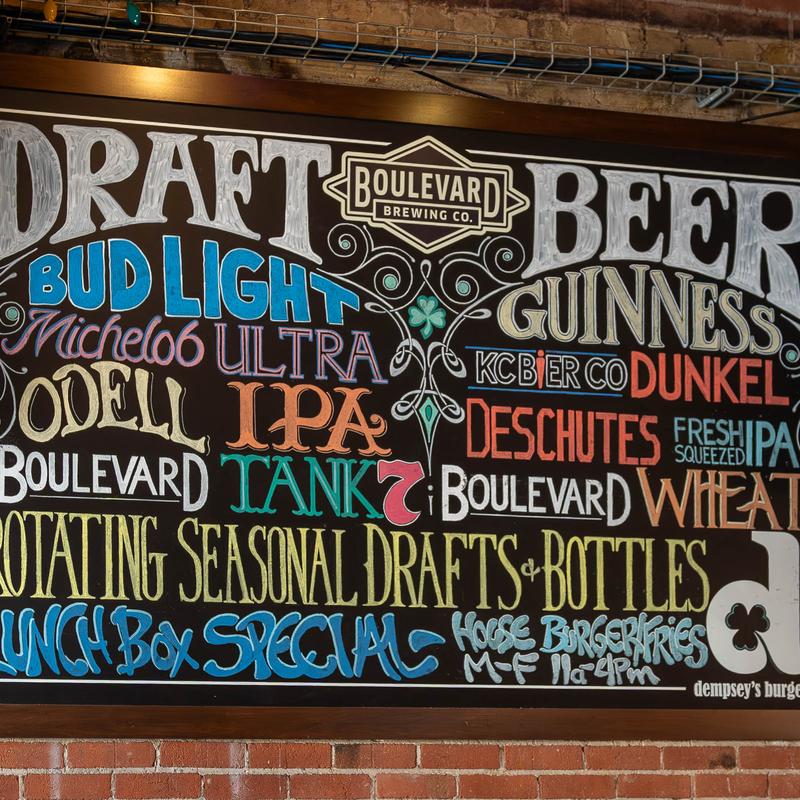 DRAFT BEER
BOULEVARD
BREWING CO.
BUD LIGHT
Michelob ULTRA
ODELL IPA
BOULEVARD TANK 7
GUINNESS
KC BIER CO DUNKEL
DESCHUTES FRESH SQUEEZED IPA
BOULEVARD WHEAT
ROTATING SEASONAL DRAFTS & BOTTLES
LUNCH BOX SPECIAL - HOUSE BURGER/FRIES
M-F 11a-4pm
d
dempsey's burge